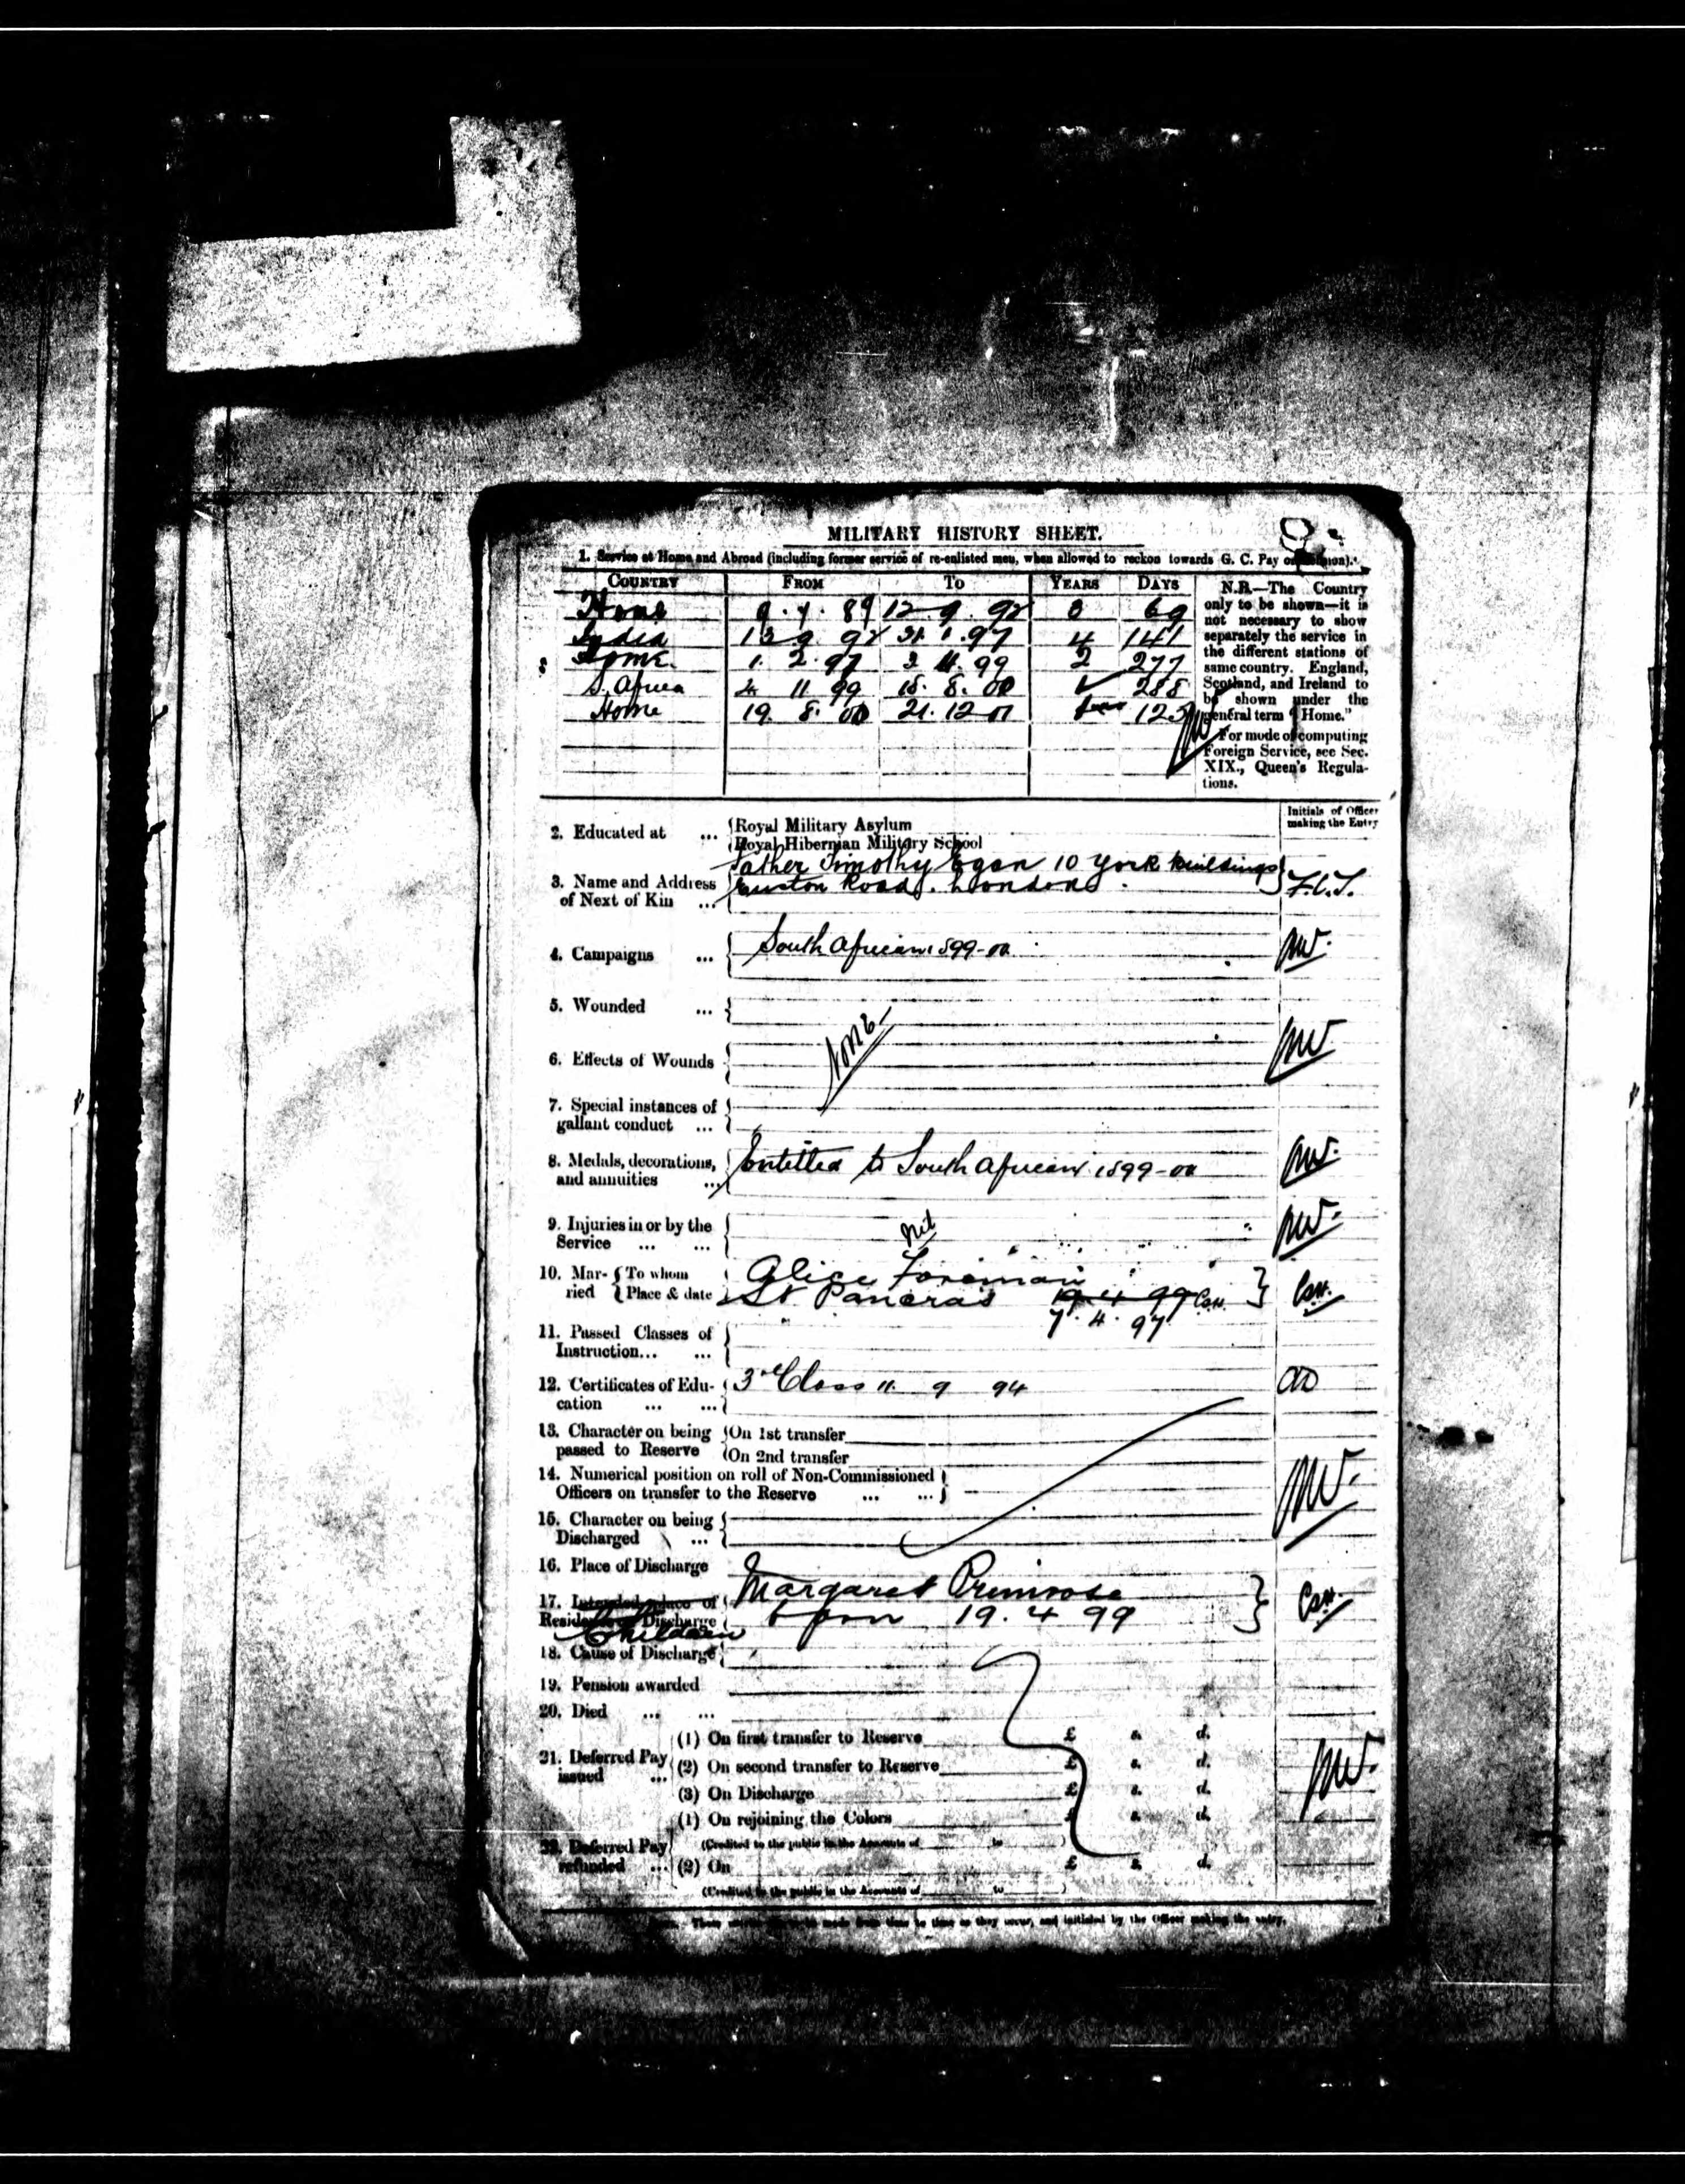 MILITARY HISTORY SHEET.
1. Service at Home and Abroad (including former service of re-enlisted men, when allowed to reckon towards G. C. Pay or Pension).
COUNTRY FROM TO YEARS DAYS
Home 89 12 9 92 3 69
India 13 9 92 31. 1. 97 4 141
Home. 1. 2. 97 3 11. 99 2 277
S. Africa 4 11 99 18. 8. 00 288
Home 19. 8. 00 21. 12 01 125
N.B.—The Country
only to be shown—it is
not necessary to show
separately the service in
the different stations of
same country. England,
Scotland, and Ireland to
be shown under the
general term "Home."
For mode of computing
Foreign Service, see Sec.
XIX., Queen's Regula-
tions.
Initials of Officer
making the Entry
2. Educated at ... {Royal Military Asylum
{Royal Hibernian Military School
3. Name and Address
of Next of Kin ...
Father Timothy Egan 10 York Buildings
Euston Road. London.
F.C.T.
4. Campaigns ... South African 1899-00
MW.
5. Wounded ...
None
6. Effects of Wounds
MW
7. Special instances of
gallant conduct ...
8. Medals, decorations,
and annuities ...
Entitled to South African 1899-00
MW.
9. Injuries in or by the
Service ... ...
Nil
MW.
10. Mar- {To whom
ried {Place & date
Alice Foreman
St Pancras 19 4 99
7. 4. 97
11. Passed Classes of
Instruction... ...
12. Certificates of Edu-
cation ... ...
3rd Class 11. 9 94
13. Character on being
passed to Reserve
{On 1st transfer
{On 2nd transfer
14. Numerical position on roll of Non-Commissioned
Officers on transfer to the Reserve ... ...
MW.
15. Character on being
Discharged ...
16. Place of Discharge
17. Intended place of
Residence Discharge
Children
Margaret Primrose
born 19. 4 99
18. Cause of Discharge
19. Pension awarded
20. Died ... ...
21. Deferred Pay
issued ...
(1) On first transfer to Reserve £ s. d.
(2) On second transfer to Reserve £ s. d.
(3) On Discharge £ s. d.
MW.
22. Deferred Pay
refunded ...
(1) On rejoining the Colors £ s. d.
(Credited to the public in the Accounts of to )
(2) On £ s. d.
(Credited to the public in the Accounts of to )
made from time to time as they occur, and initialed by the Officer making the entry.